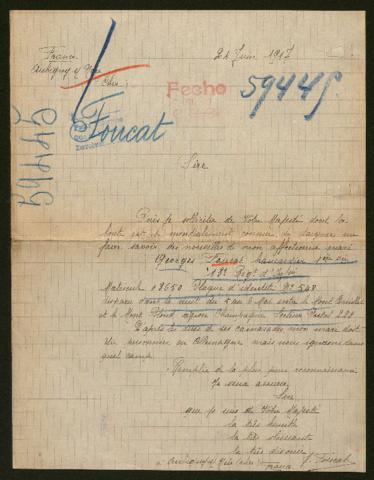 France
24 Juin 1917
Aubigny s/ Nère
Cher
Fecho
59449
Foucat
59449
Sire
Puis je solliciter de Votre Majesté dont la
bonté est si mondialement connue de daigner me
faire savoir des nouvelles de mon affectionné mari
Georges Foucat
Matricule 08650 Plaque d'identité N° 548
disparu dans la nuit du 5 au 6 Mai entre le Mont Cornillet
et le Mont Blond région Champagne Secteur Postal 228
D'après le dires de ses camarades mon mari doit
être prisonnier en Allemagne mais nous ignorons dans
quel camp.
Remplie de la plus pure reconnaissance
Je vous assure,
Sire
que je suis de Votre Majesté
la très humble
la très obéissante
la très dévouée
G. Foucat
à Aubigny s/ Nère (Cher)
France